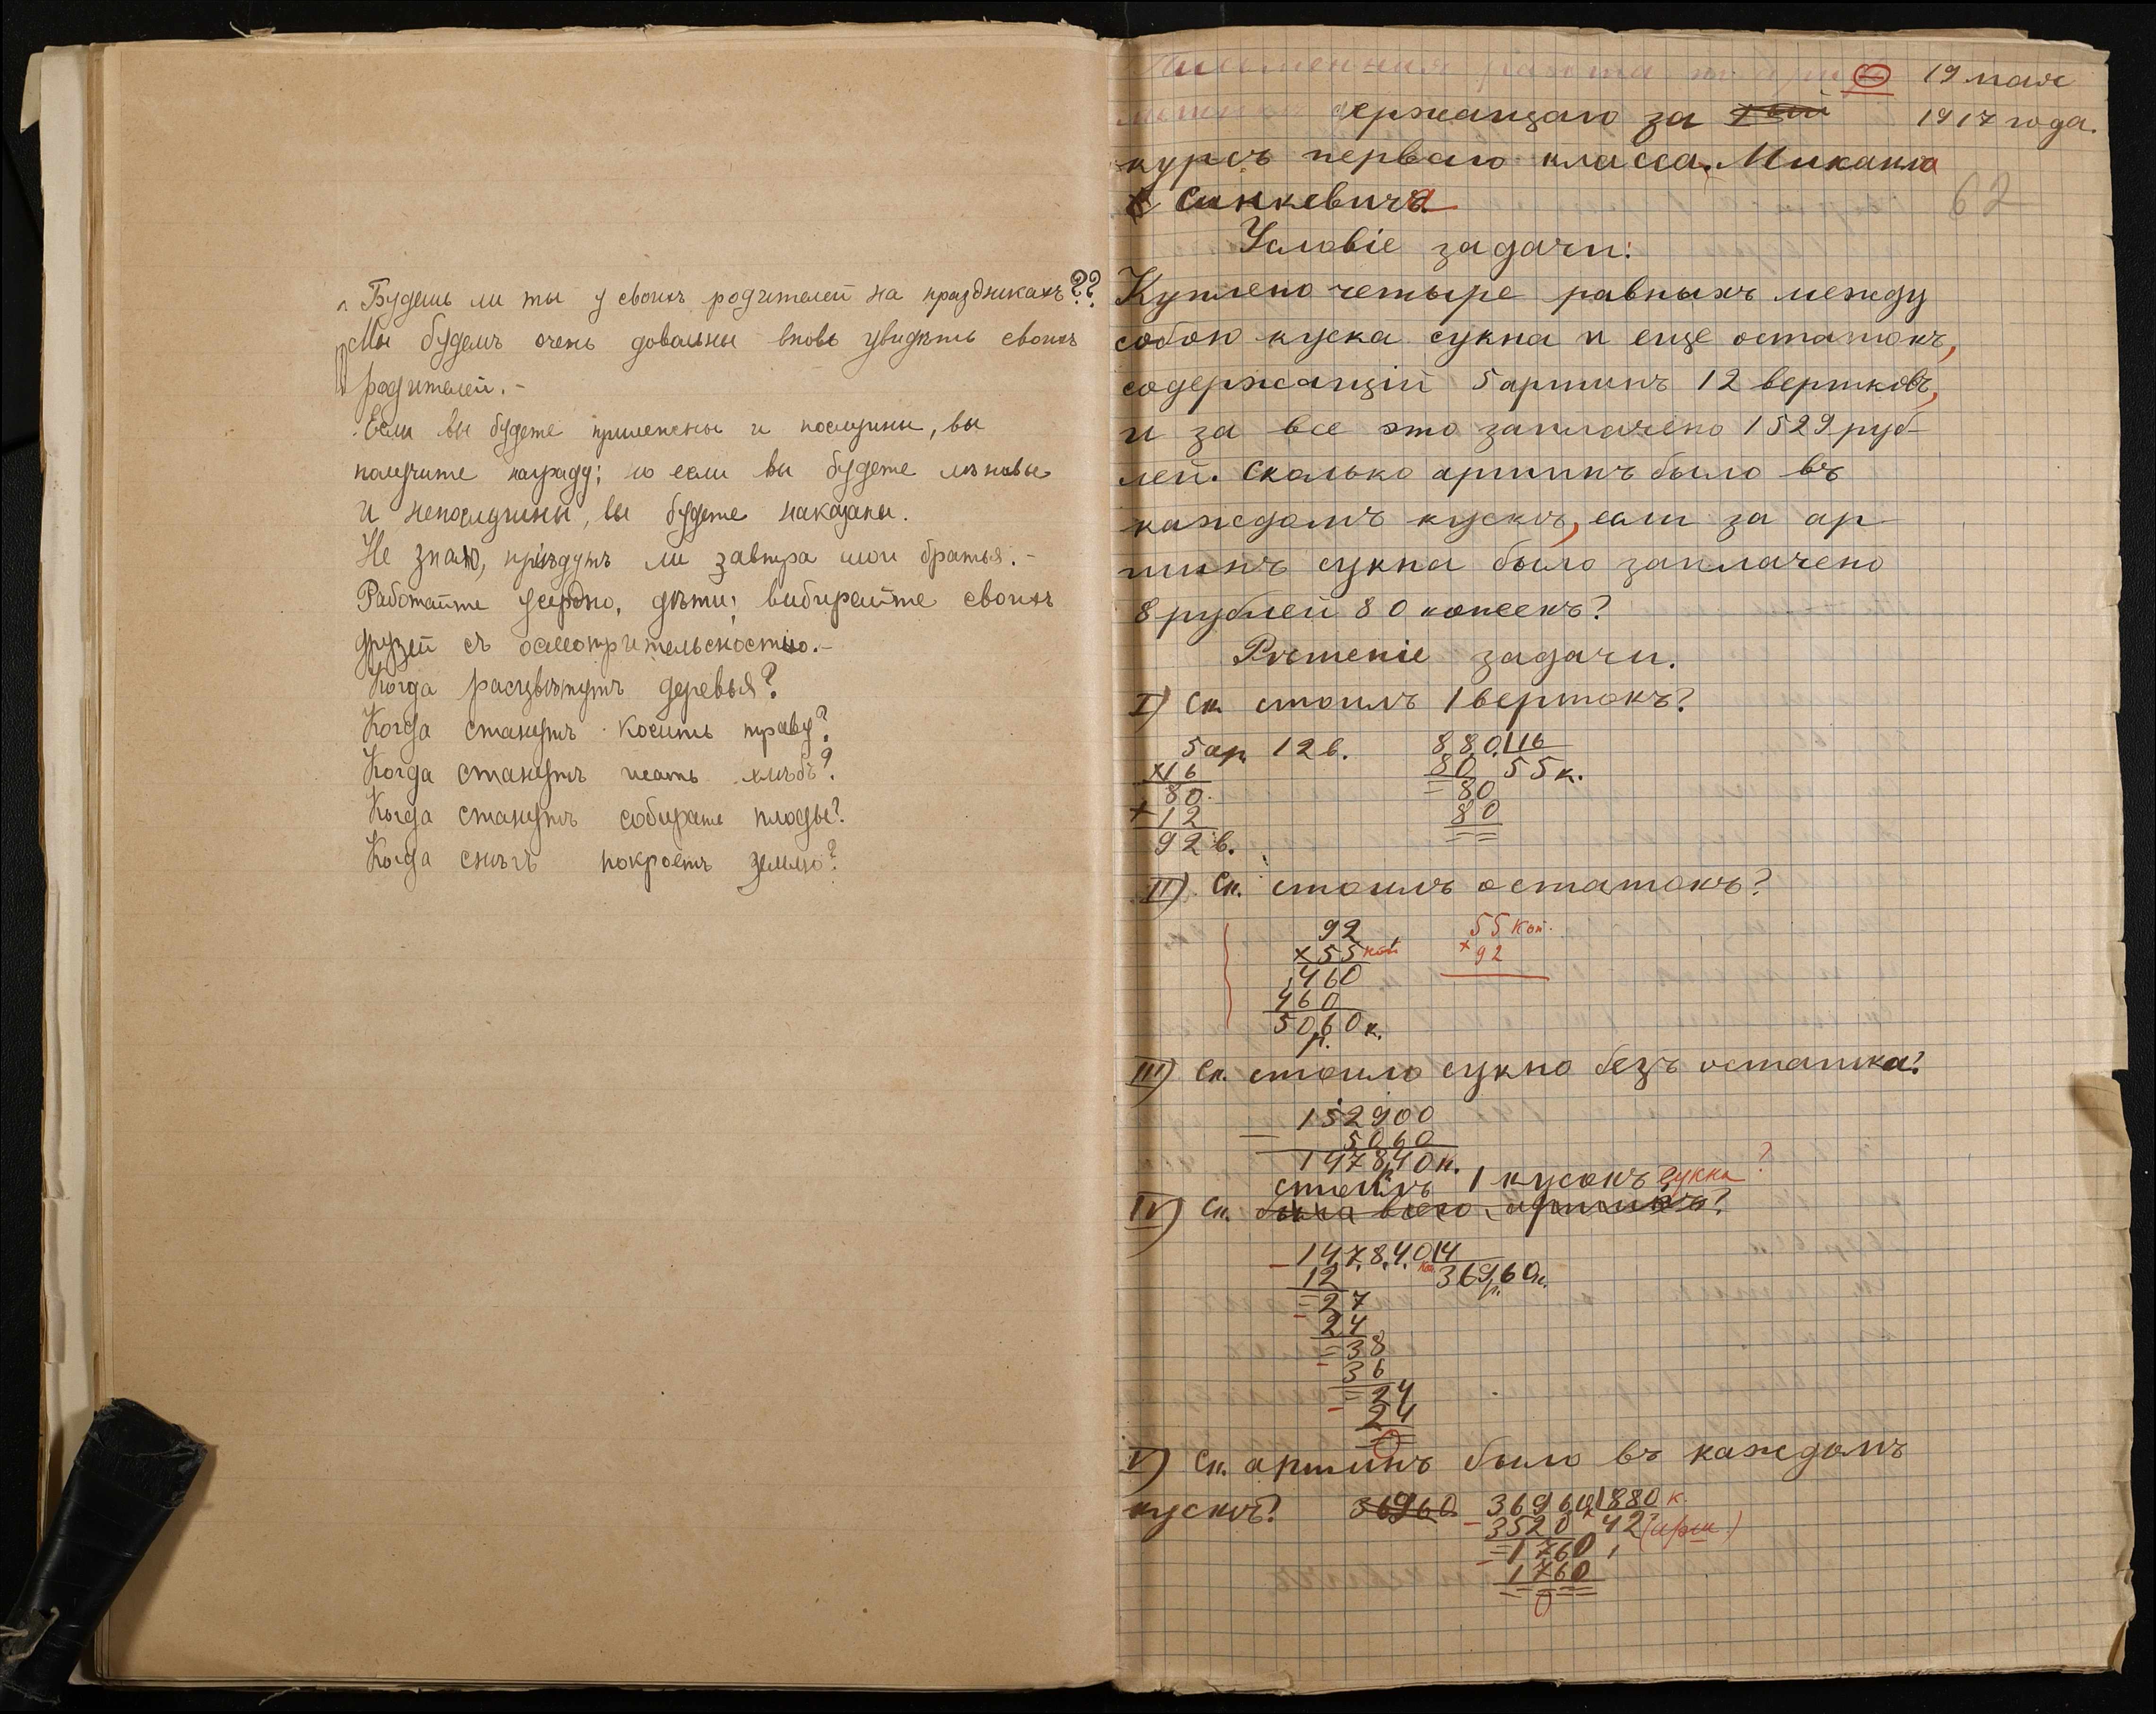 Будешь ли ты у своихъ родителей на праздникахъ??
Мы будемъ очень довольны вновь увидѣть своихъ
родителей.-
Если вы будете прилежны и послушны, вы
получите награду; но если вы будете лѣнивы
и непослушны, вы будете наказаны.
Не знаю, пріѣдутъ ли завтра мои братья.-
Работайте усердно, дѣти; выбирайте своихъ
друзей съ осмотрительностью.-
Когда расцвѣтутъ деревья?
Когда станутъ косить траву?
Когда станутъ жать хлѣбъ?
Когда станутъ собирать плоды?
Когда снѣгъ покроетъ землю?
Письменная работа по 19 мая
держащаго за 1917 года.
курсъ перваго класса. Михаила
Синкевича 62
Условіе задачи:
Куплено четыре равныхъ между
собою куска сукна и еще остатокъ,
содержащій 5 аршинъ 12 вершковъ,
и за все это заплачено 1529 руб-
лей. Сколько аршинъ было въ
каждомъ кускѣ, если за ар-
шинъ сукна было заплачено
8 рублей 80 копеекъ?
Рѣшеніе задачи.
I) Ск. стоилъ 1 вершокъ?
5 ар. 12 в. 880 16
×16 80 55 к.
80 =80
+12 80
92 в.
II) Ск. стоилъ остатокъ?
92 55 коп.
×55 коп × 92
460
460
50 р. 60 к.
III) Ск. стоило сукно безъ остатка?
152900
– 5060
147840 к.
стоилъ 1 кусокъ сукна ?
IV) Ск. было всего аршинъ?
147840 4
12 коп. 369 р. 60 к.
=27
24
=38
36
=24
24
0
V) Ск. аршинъ было въ каждомъ
кускѣ? 36960 36960 880 к.
3520 42 (арш.)
=1760
1760
0